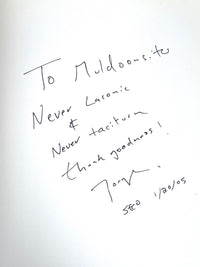 To Muldoonsite
Never Laconic
&
Never taciturn
thank goodness!
SEO 1/20/05